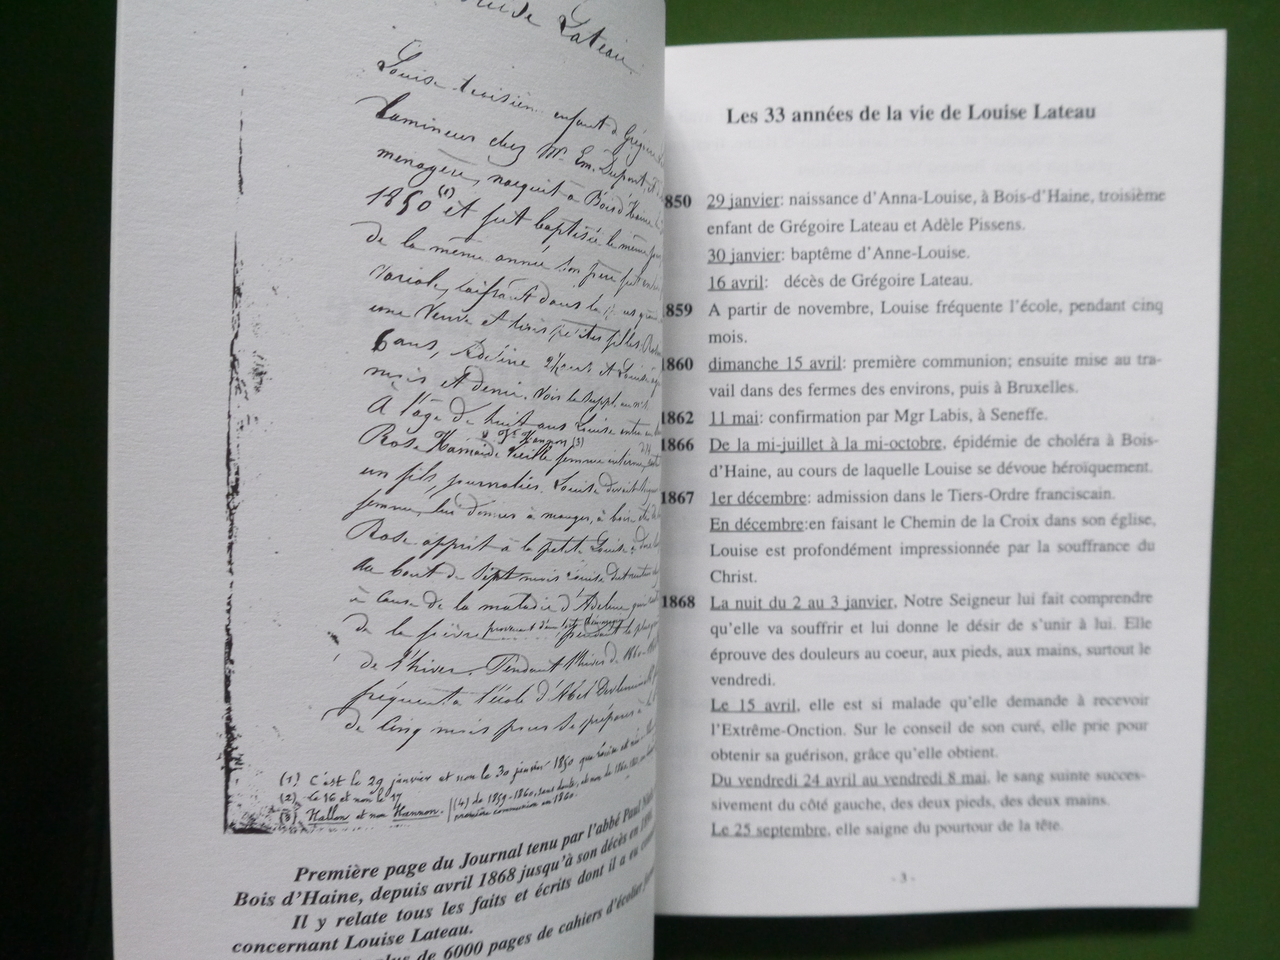 Lateau
Louise troisième enfant de Grégoire
Lamineur chez Mr. Em. Dupont, et
menagère, naequit à Bois d'Haine
1850 (1) et fut baptisée le même jour
de la même année son père fut
Variole, laissant dans la
une Veuve et trois petites filles:
6 ans, Adeline 2 1/2 ans et Louise
mois et demie. Voir le Suppl. au n°1
A l'âge de huit ans Louise entre
Rose
un fils, journalier. Louise devait
femme, lui donner à manger, à boire
Rose apprit à la petite Louise à
Au bout de Sept mois Louise dut
à cause de la maladie d'Adeline qui
de la fièvre pendant la plus
de l'hiver. Pendant l'hiver de 1860
fréquenta l'école d'
de cinq mois pour se préparer à
(1) C'est le 29 janvier et non le 30 janvier 1850 que
(2) le 16 et non le 17
(3) Hallon et non Hannon. (4) de 1859-1860, sans doute, et non de 1860
première communion en 1860.
Première page du Journal tenu par l'abbé Paul
Bois d'Haine, depuis avril 1868 jusqu'à son décès en
Il y relate tous les faits et écrits dont il a eu
concernant Louise Lateau.
plus de 6000 pages de cahiers d'écolier
Les 33 années de la vie de Louise Lateau
850 29 janvier: naissance d'Anna-Louise, à Bois-d'Haine, troisième
enfant de Grégoire Lateau et Adèle Pissens.
30 janvier: baptême d'Anne-Louise.
16 avril: décès de Grégoire Lateau.
859 A partir de novembre, Louise fréquente l'école, pendant cinq
mois.
1860 dimanche 15 avril: première communion; ensuite mise au tra-
vail dans des fermes des environs, puis à Bruxelles.
1862 11 mai: confirmation par Mgr Labis, à Seneffe.
1866 De la mi-juillet à la mi-octobre, épidémie de choléra à Bois-
d'Haine, au cours de laquelle Louise se dévoue héroïquement.
1867 1er décembre: admission dans le Tiers-Ordre franciscain.
En décembre:en faisant le Chemin de la Croix dans son église,
Louise est profondément impressionnée par la souffrance du
Christ.
1868 La nuit du 2 au 3 janvier, Notre Seigneur lui fait comprendre
qu'elle va souffrir et lui donne le désir de s'unir à lui. Elle
éprouve des douleurs au coeur, aux pieds, aux mains, surtout le
vendredi.
Le 15 avril, elle est si malade qu'elle demande à recevoir
l'Extrême-Onction. Sur le conseil de son curé, elle prie pour
obtenir sa guérison, grâce qu'elle obtient.
Du vendredi 24 avril au vendredi 8 mai, le sang suinte succes-
sivement du côté gauche, des deux pieds, des deux mains.
Le 25 septembre, elle saigne du pourtour de la tête.
- 3 -